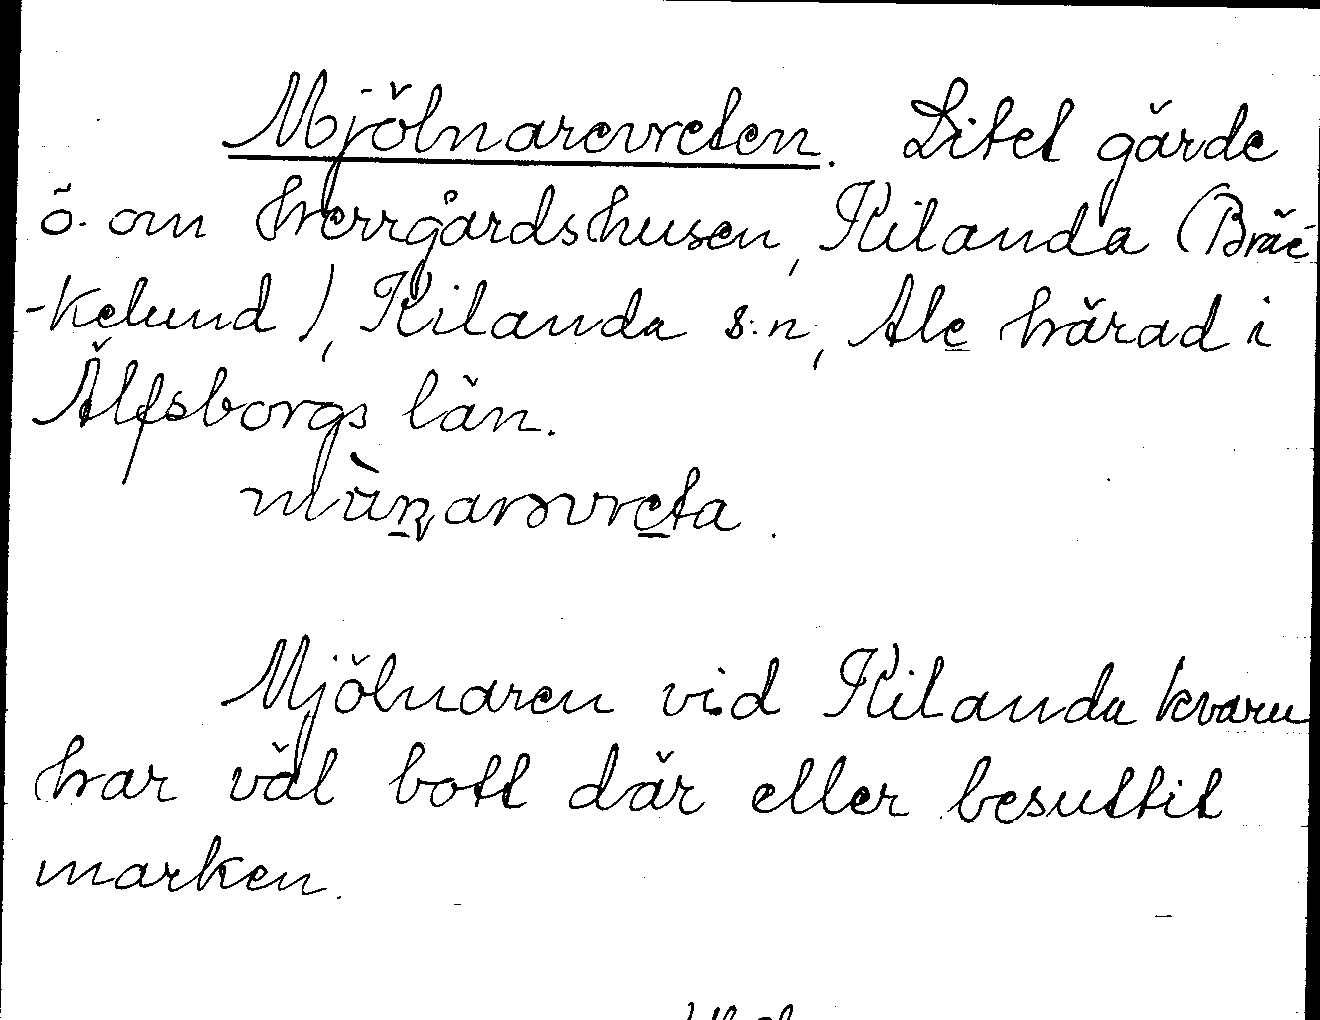 Mjölnarevreten. Litet gärde
ö. om herrgårdshusen, Kilanda (Bräc
-kelund), Kilanda s:n, Ale härad i
Älfsborgs län.

Mjölnaren vid Kilanda kvarn
har väl bott där eller besuttit
marken.